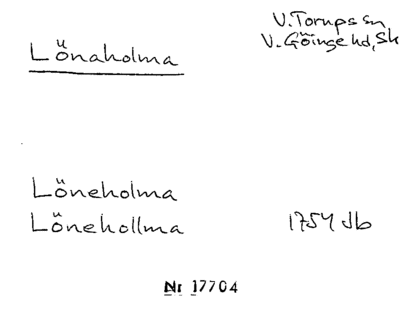 V. Torups sn
V. Göinge hd, Sk
Lönaholma
Löneholma
Lönehollma 1754 Jb
Nr 17704